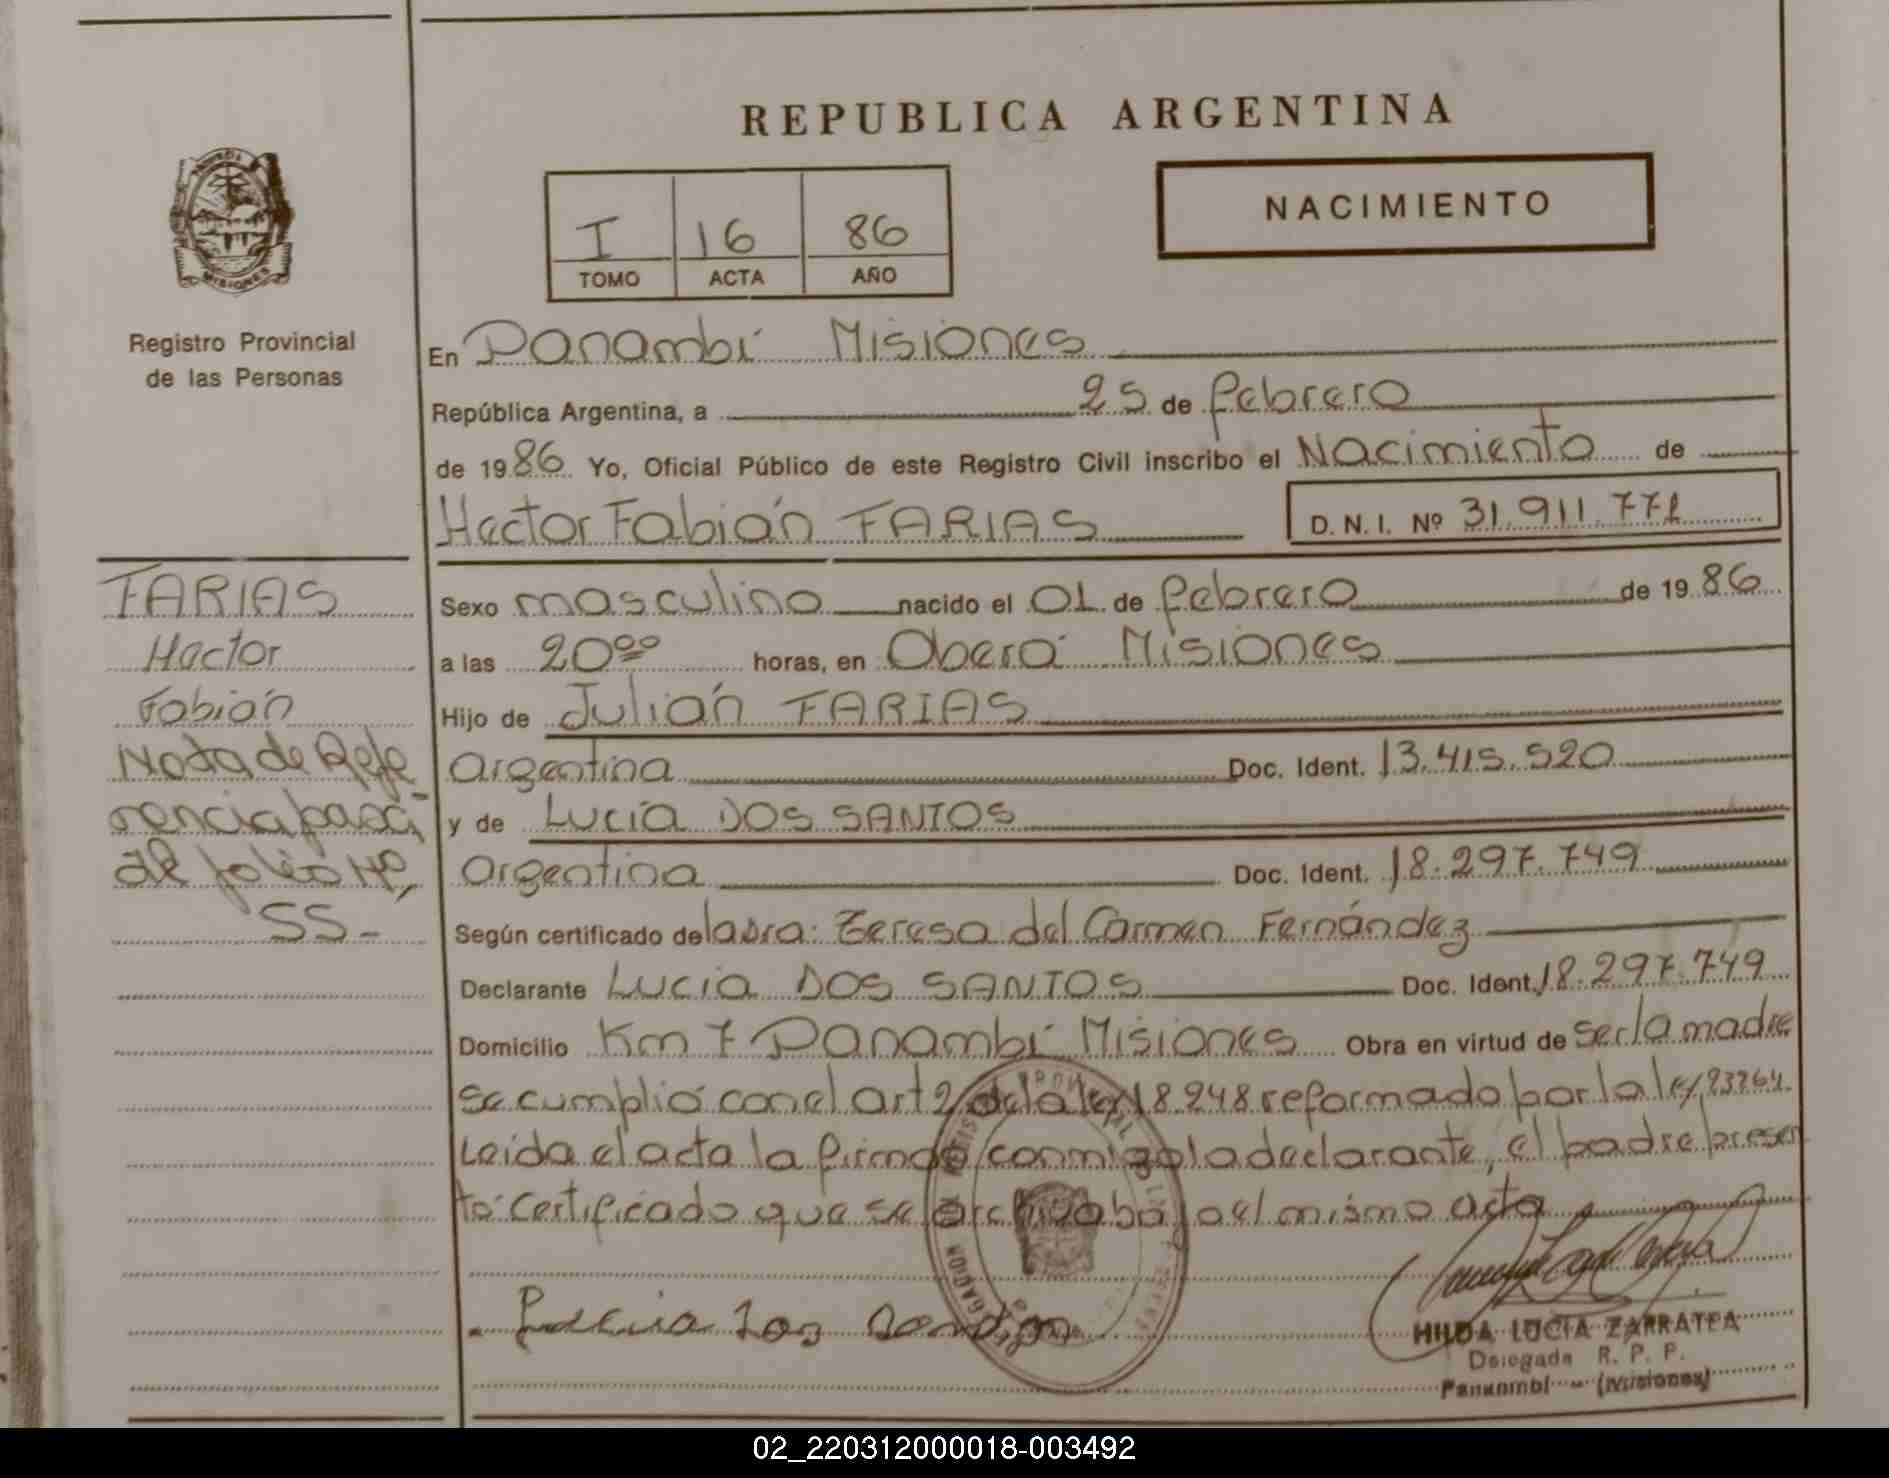 REPUBLICA ARGENTINA
NACIMIENTO
I 16 86
TOMO ACTA AÑO
MISIONES
Registro Provincial
de las Personas
En Panambí Misiones
República Argentina, a 25 de febrero
de 1986 Yo, Oficial Público de este Registro Civil inscribo el Nacimiento de
Hector Fabián FARIAS D.N.I. Nº 31.911.771
FARIAS
Hector
Fabián
Nota de Refe
rencia pasa
al folio Nº,
55-
Sexo masculino nacido el 01 de febrero de 1986
a las 20ºº horas, en Oberá Misiones
Hijo de Julián FARIAS
Argentina Doc. Ident. 13.415.520
y de Lucía DOS SANTOS
Argentina Doc. Ident. 18.297.749
Según certificado de la dra: Teresa del Carmen Fernández
Declarante Lucía DOS SANTOS Doc. Ident. 18.297.749
Domicilio Km 7 Panambí Misiones Obra en virtud de ser la madre
se cumplió con el art 2 de la ley 18248 reformado por la ley 23264.
Leída el acta la firma conmigo la declarante, el padre presen
tó certificado que se archiva bajo el mismo acta
HILDA LUCIA ZARRATEA
Delegada R. P. P.
Panambí - (Misiones)
02_220312000018-003492